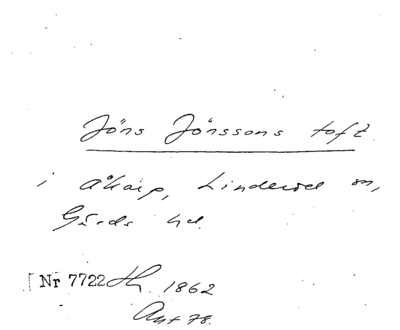 Jöns Jönssons toft
i Åkarp, Linderöd m,
Gärds hd.
Nr 7722 Th. 1862
Ant 78.